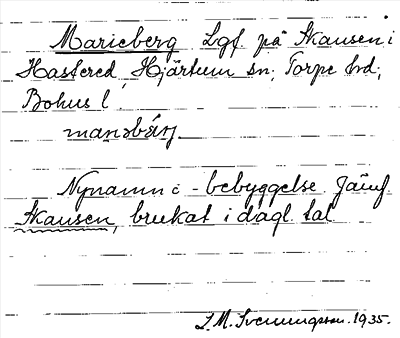 Marieberg Lgf. på Skansen i
Hastered, Hjärtum sn; Torpe hd;
Bohus l.
Nynamn - bebyggelse. Jämf
Skansen, brukat i dagl. tal
S. M. Svenungsson. 1935.